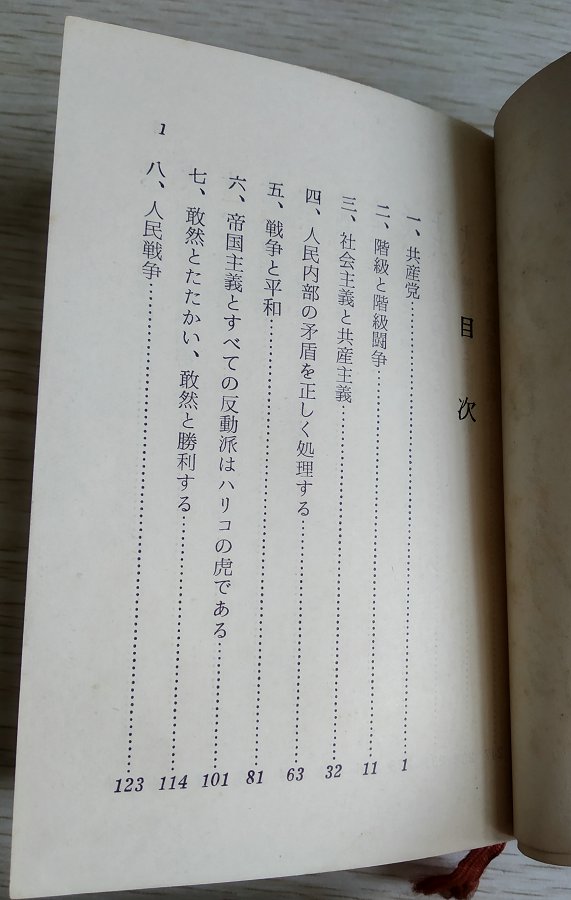 目次
一、共産党……………………1
二、階級と階級闘争……………………11
三、社会主義と共産主義……………………32
四、人民内部の矛盾を正しく処理する……………………63
五、戦争と平和……………………81
六、帝国主義とすべての反動派はハリコの虎である……………………101
七、敢然とたたかい、敢然と勝利する……………………114
八、人民戦争……………………123
1